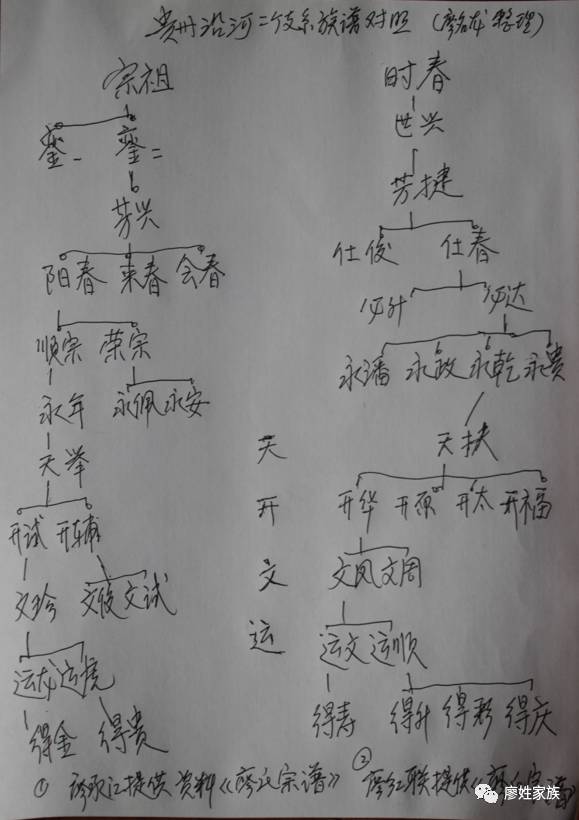 贵州沿河二个支系族谱对照 (廖名龙整理)
宗祖 时春
銮一 銮二 世兴
芳兴 芳捷
阳春 来春 会春 仕俊 仕春
必升 必达
顺宗 荣宗 永潘 永政 永乾 永贵
永年 永佩 永安
天举 天 天扶
开试 开辅 开 开华 开原 开太 开福
文珍 文俊 文试 文 文凤 文周
运龙 运虎 运 运文 运顺
得金 得贵 得寿 得升 得彩 得庆
① 廖 江提供资料《廖氏宗谱》 ② 廖红联提供《廖氏宗谱
廖姓家族